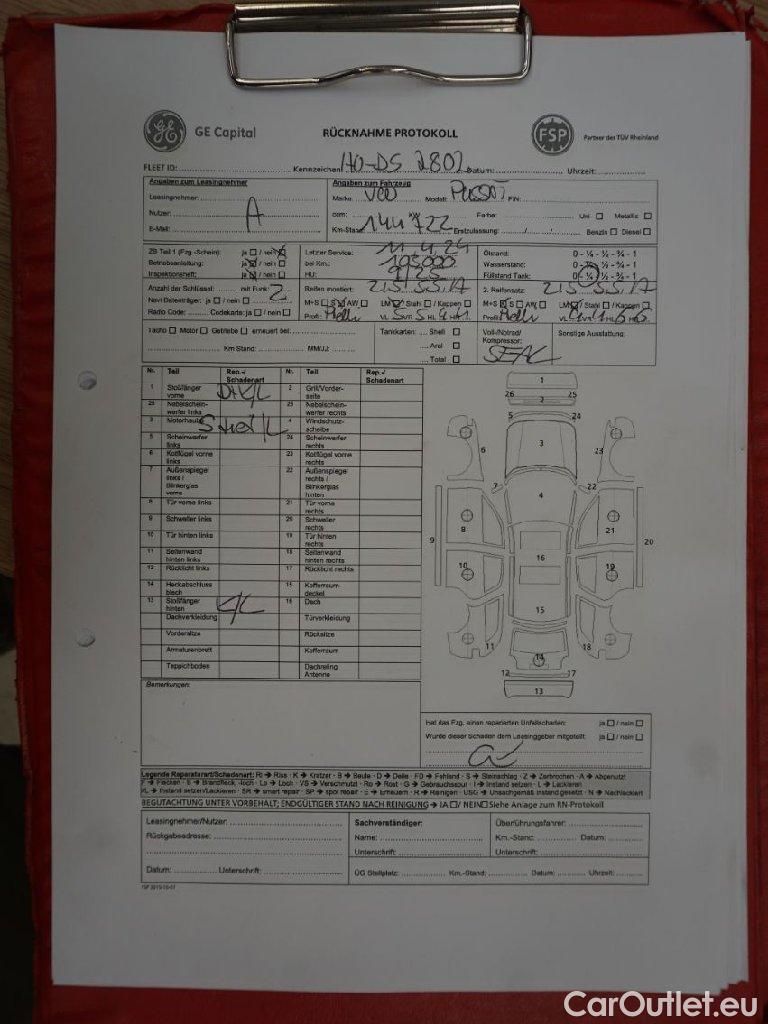 GE Capital
RÜCKNAHME PROTOKOLL
FSP
Partner des TÜV Rheinland
FLEET ID: Kennzeichen HO-DS 2802 Datum: Uhrzeit:
Angaben zum Leasingnehmer
Leasingnehmer:
Nutzer: A
E-Mail:
Angaben zum Fahrzeug
Marke: Modell: FIN:
ccm: KW Farbe: Uni Metallic
Km-Stand 144722 Erstzulassung: Benzin Diesel
ZB Teil 1 (Fzg.-Schein): ja / nein
Betriebsanleitung: ja / nein
Inspektionsheft: ja / nein
Letzter Service: 11.4.24
bei Km.: 195000
HU: 9/25
Ölstand: 0 - ¼ - ½ - ¾ - 1
Wasserstand: 0 - ¼ - ½ - ¾ - 1
Füllstand Tank: 0 - ¼ - ½ - ¾ - 1
Anzahl der Schlüssel: mit Funk: 2
Navi Datenträger: ja / nein
Radio Code: Codekarte: ja / nein
Reifen montiert: 215 55 17
M+S S AW LM / Stahl / Kappen
Profil:
2. Reifensatz: 215 55 17
M+S S AW LM / Stahl / Kappen
Profil:
Tacho Motor Getriebe erneuert bei:
Km Stand: MM/JJ:
Tankkarten: Shell
Aral
Total
Voll-/Notrad/
Kompressor:
SEAL
Sonstige Ausstattung:
Nr. Teil Rep.-/ Schadenart Nr. Teil Rep.-/ Schadenart
1 Stoßfänger vorne 2 Grill/Vorderseite
25 Nebelscheinwerfer links 26 Nebelscheinwerfer rechts
3 Motorhaube 4 Windschutzscheibe
5 Scheinwerfer links 24 Scheinwerfer rechts
6 Kotflügel vorne links 23 Kotflügel vorne rechts
7 Außenspiegel links / Blinkerglas vorne 22 Außenspiegel rechts / Blinkerglas hinten
8 Tür vorne links 21 Tür vorne rechts
9 Schweller links 20 Schweller rechts
10 Tür hinten links 19 Tür hinten rechts
11 Seitenwand hinten links 18 Seitenwand hinten rechts
12 Rücklicht links 17 Rücklicht rechts
14 Heckabschlussblech 15 Kofferraumdeckel
13 Stoßfänger hinten 16 Dach
Dachverkleidung Türverkleidung
Vordersitze Rücksitze
Armaturenbrett Kofferraum
Teppichboden Dachreling Antenne
1
26 2 25
5 24
6 3 23
7 22
4
8 21
9 16 20
10 19
15
11 14 18
12 17
13
Bemerkungen:
Hat das Fzg. einen reparierten Unfallschaden: ja / nein
Wurde dieser Schaden dem Leasinggeber mitgeteilt: ja / nein
Legende Reparaturart/Schadenart: RI → Riss - K → Kratzer - B → Beule - D → Delle - FD → Fehlend - S → Steinschlag - Z → Zerbrochen - A → Abgenutzt
F → Flecken - B → Brandfleck, -loch - Lo → Loch - VS → Verschmutzt - Ro → Rost - G → Gebrauchsspur - I → Instand setzen - L → Lackieren
KL → Instand setzen/Lackieren - SR → smart repair - SP → spot repair - E → Erneuern - R → Reinigen - USG → Unsachgemäß instand gesetzt - N → Nachlackiert
BEGUTACHTUNG UNTER VORBEHALT; ENDGÜLTIGER STAND NACH REINIGUNG → JA / NEIN Siehe Anlage zum RN-Protokoll
Leasingnehmer/Nutzer:
Rückgabeadresse:
Datum: Unterschrift:
Sachverständiger:
Name:
Unterschrift:
Überführungsfahrer:
Km.-Stand: Datum:
Unterschrift:
ÜG Stellplatz: Km.-Stand: Datum: Uhrzeit:
CarOutlet.eu